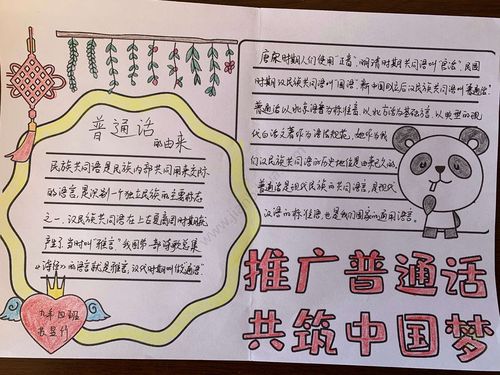 普通话
的由来
民族共同语是民族内部共同用来交际
的语言,是识别一个独立民族的主要标志
之一.汉民族共同语在上古夏商周时期就
产生了当时叫"雅言"我国第一部诗歌总集
《诗经》的语言就是雅言,汉代时期叫做"通语"
唐宋时期人们使用"正音".明清时期共同语叫"官话".民国
时期汉民族共同语叫"国语"新中国成立后汉民族共同语叫普通话"
普通话以北京语音为标准音.以北方话为基础方言,以典型的现
代白话文著作为语法规范.
们汉民族共同语的历史地位是由来已久的.
普通话是现代民族的共同语言,是现代
汉语的标准语,也是我们国家的通用语言.
推广普通话
共筑中国梦
九年四班